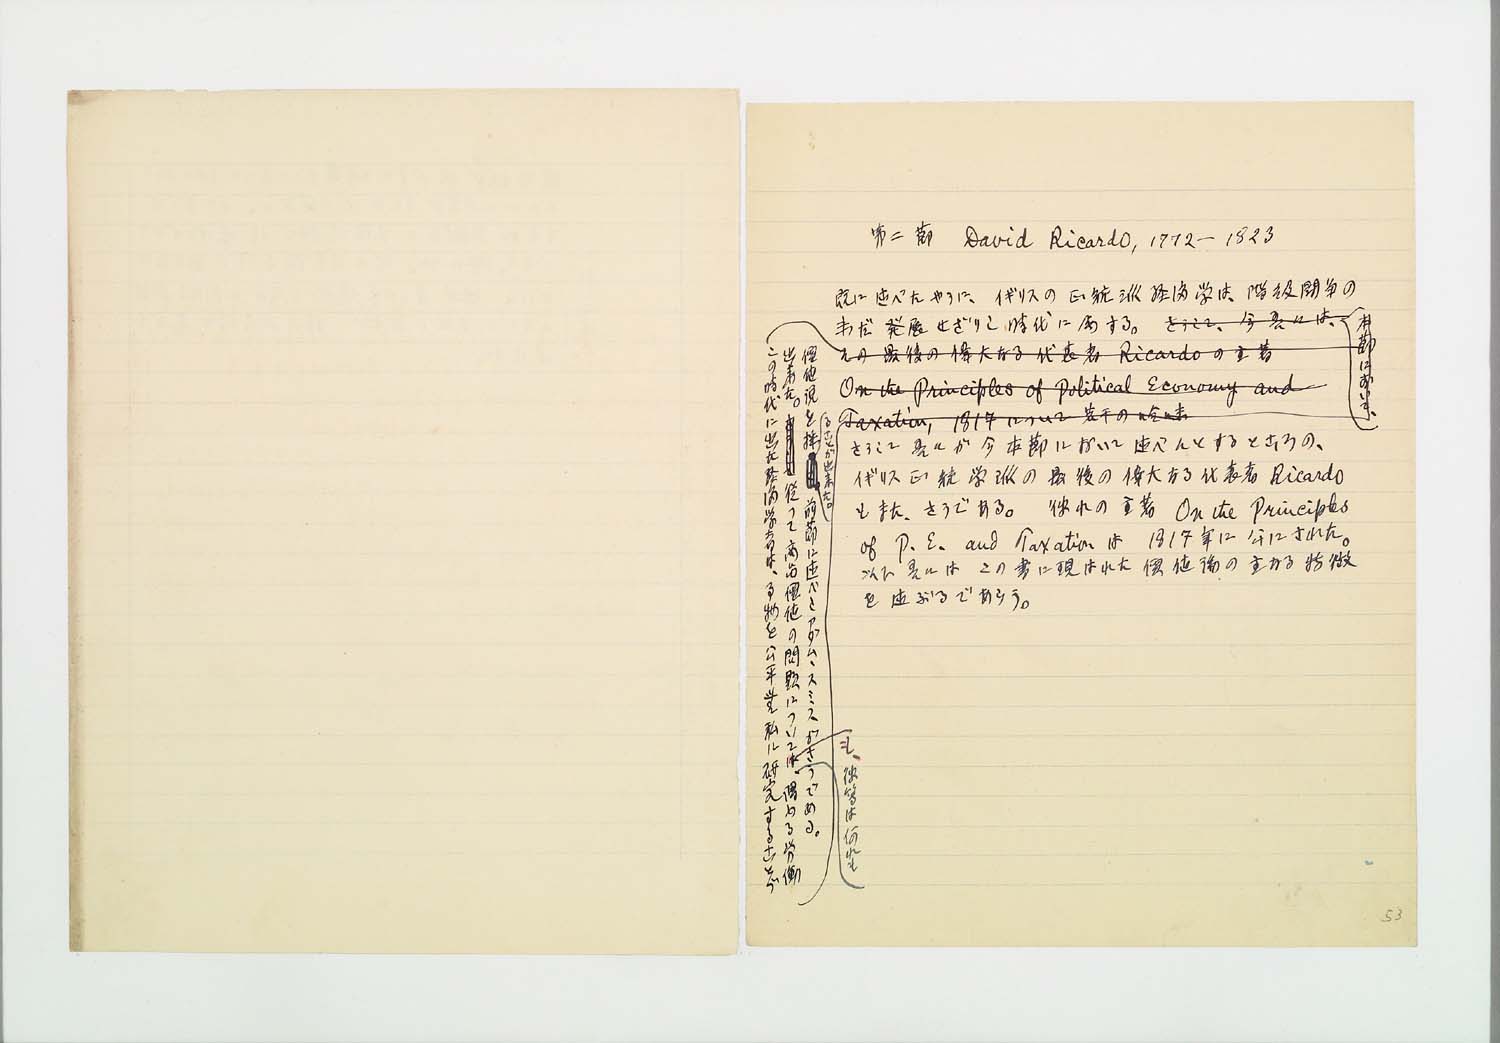 第二節 David Ricardo, 1772—1823
既に述べたやうに、イギリスの正統派経済学は、階級闘争の
未だ発展せざりし時代に属する。さうして、今吾々は、
その最後の偉大なる代表者 Ricardo の主著
On the Principles of Political Economy and
Taxation, 1817 について若干の
本節において、
さうして吾々が今本節において述べんとするところの、
イギリス正統学派の最後の偉大なる代表者 Ricardo
もまた、さうである。彼れの主著 On the Principles
of P. E. and Taxation は 1817年に公にされた。
以下吾々はこの書に現はれた価値論の主なる特徴
を述ぶるであらう。
この時代に出た経済学者は、事物を公平無私に研究することが
出来た。従って商品価値の問題についても、彼等は何れも
労働
価値説を採
ることが出来た。
前節に述べしアダム・スミスがさうである。
53